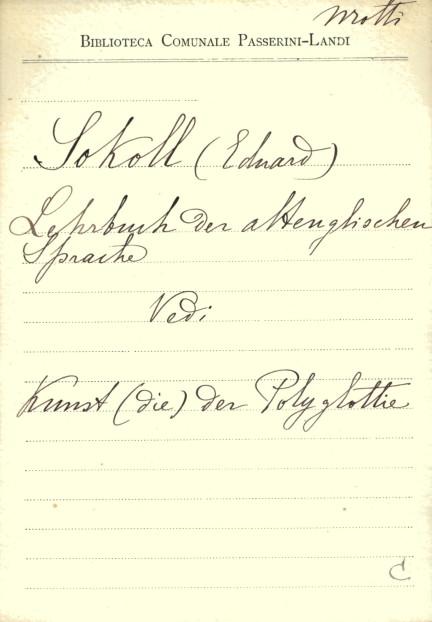 Motti
BIBLIOTECA COMUNALE PASSERINI-LANDI
Sokoll (Eduard)
Lehrbuch der altenglischen
Sprache
Vedi
Kunst (die) der Polyglottie
C